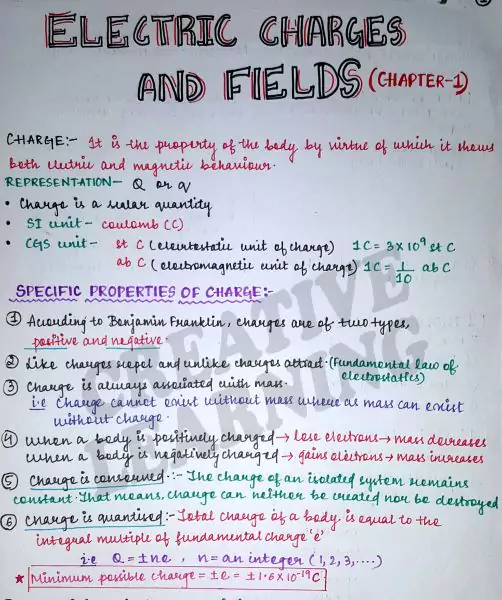 ELECTRIC CHARGES
AND FIELDS (CHAPTER-1)
CHARGE:- It is the property of the body by virtue of which it shows
both electric and magnetic behaviour.
REPRESENTATION- Q or q
• Charge is a scalar quantity
• SI unit - coulomb (C)
• CGS unit - st C (electrostatic unit of charge) 1C = 3×10⁹ st C
ab C (electromagnetic unit of charge) 1C = 1/10 ab C
SPECIFIC PROPERTIES OF CHARGE:-
① According to Benjamin Franklin, charges are of two types,
positive and negative.
② Like charges repel and unlike charges attract. (Fundamental law of
electrostatics)
③ Charge is always associated with mass.
i.e Charge cannot exist without mass where as mass can exist
without charge.
④ When a body is positively charged → Lose electrons → mass decreases
When a body is negatively charged → gains electrons → mass increases
⑤ Charge is conserved:- The charge of an isolated system remains
constant. That means, charge can neither be created nor be destroyed
⑥ Charge is quantised:- Total charge of a body is equal to the
integral multiple of fundamental charge 'e'
i.e Q = ±ne, n = an integer (1,2,3,....)
★ Minimum possible charge = ±e = ±1.6×10⁻¹⁹C
CREATIVE
LEARNING